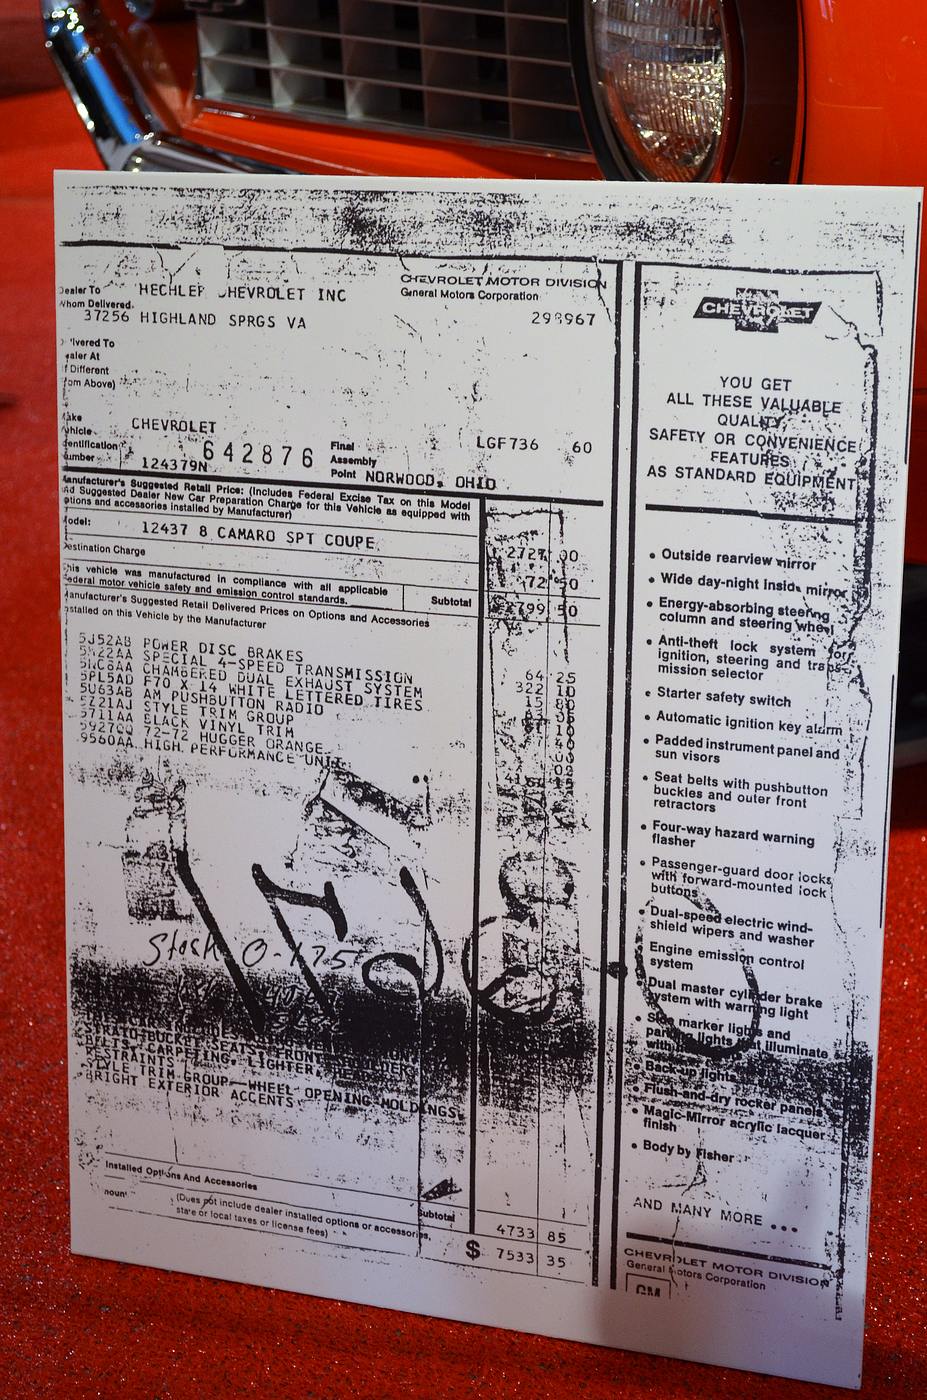 Dealer To HECHLER CHEVROLET INC
Whom Delivered
37256 HIGHLAND SPRGS VA
CHEVROLET MOTOR DIVISION
General Motors Corporation
298967
CHEVROLET
642876
124379N
Final
Assembly
Point NORWOOD, OHIO
LGF736 60
Manufacturer's Suggested Retail Price: (Includes Federal Excise Tax on this Model
And Suggested Dealer New Car Preparation Charge for this Vehicle as equipped with
options and accessories installed by Manufacturer)
Model: 12437 8 CAMARO SPT COUPE 2727 00
Destination Charge 72 50
This vehicle was manufactured in compliance with all applicable
federal motor vehicle safety and emission control standards.
Subtotal 2799 50
Manufacturer's Suggested Retail Delivered Prices on Options and Accessories
Installed on this Vehicle by the Manufacturer
5J52AB POWER DISC BRAKES 64 25
SPECIAL 4-SPEED TRANSMISSION 322 10
5NC8AA CHAMBERED DUAL EXHAUST SYSTEM 15 80
5PL5AD F70 X 14 WHITE LETTERED TIRES
5U63AB AM PUSHBUTTON RADIO
5Z21AJ STYLE TRIM GROUP
5711AA BLACK VINYL TRIM
72-72 HUGGER ORANGE
9560AA HIGH PERFORMANCE UNIT
Stock 0-175
STRATO-BUCKET SEATS, FRONT SHOULDER
BELTS, CARPETING, LIGHTER,
RESTRAINTS
STYLE TRIM GROUP—WHEEL OPENING MOLDINGS,
BRIGHT EXTERIOR ACCENTS
Installed Options And Accessories
Subtotal 4733 85
(Does not include dealer installed options or accessories,
state or local taxes or license fees)
$ 7533 35
CHEVROLET
YOU GET
ALL THESE VALUABLE
QUALITY,
SAFETY OR CONVENIENCE
FEATURES
AS STANDARD EQUIPMENT
• Outside rearview mirror
• Wide day-night inside mirror
• Energy-absorbing steering
column and steering wheel
• Anti-theft lock system for
ignition, steering and trans-
mission selector
• Starter safety switch
• Automatic ignition key alarm
• Padded instrument panel and
sun visors
• Seat belts with pushbutton
buckles and outer front
retractors
• Four-way hazard warning
flasher
• Passenger-guard door locks
with forward-mounted lock
buttons
• Dual-speed electric wind-
shield wipers and washer
• Engine emission control
system
• Dual master cylinder brake
system with warning light
• Side marker lights and
parking lights that illuminate
with
• Back-up lights
• Flush-and-dry rocker panels
• Magic-Mirror acrylic lacquer
finish
• Body by Fisher
AND MANY MORE ...
CHEVROLET MOTOR DIVISION
General Motors Corporation
GM